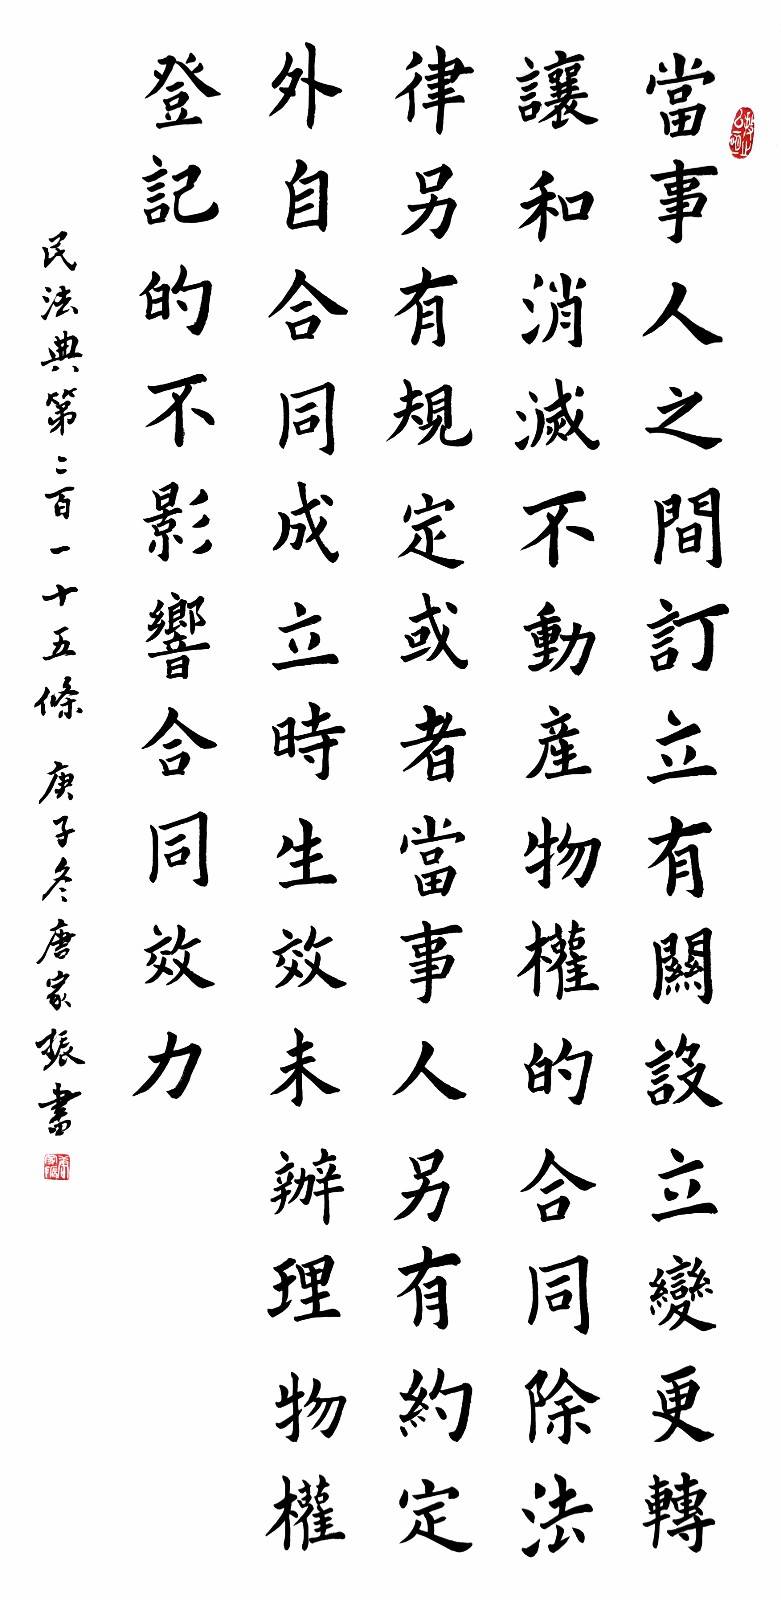 當事人之間訂立有關設立變更轉
讓和消滅不動産物權的合同除法
律另有規定或者當事人另有約定
外自合同成立時生效未辦理物權
登記的不影響合同效力
民法典第二百一十五條 庚子冬唐家振書